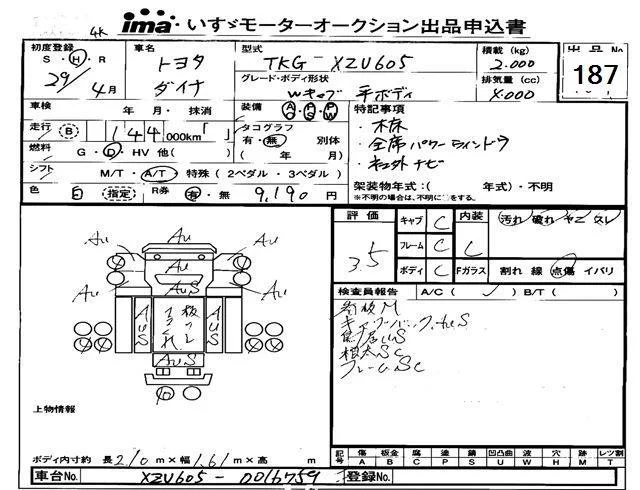 4K ima いすゞモーターオークション出品申込書
初度登録 車名 型式 積載(kg) 出品No.
S・H・R トヨタ TKG-XZU605 2.000 187
29/4月 ダイナ グレード・ボディ形状 排気量(cc)
Wキャブ 平ボディ 4.000
車検 年 月・ 抹消 装備 AC PS PW 特記事項
走行 B 144 000km「 」 タコグラフ ・木床
有・無 別体 ・全席パワーウインドウ
燃料 G・D・HV 他( ) ( 年 月) ・社外ナビ
シフト M/T・A/T・特殊(2ペダル・3ペダル)
架装物年式:( 年式)・不明
色 白 指定 R券 有・無 9,190 円 ※不明の場合は、不明に○をする。
評価 キャブ C 内装 汚れ 破れ ヤニ スレ
3.5 フレーム C C
ボディ C Fガラス 割れ 線 点傷 イバリ
検査員報告 A/C( ) B/T( )
AU AU AU
AU AUS AU
AUS AUS
AUS
キャブバックAUS
根太SC
フレームSC
上物情報
ボディ内寸約 長2.10m×幅1.61m×高 m
記号 傷 板金 腐 塗 錆 凹凸曲 波 穴 跡 レツ割
A B C P S U W H M T
車台No. XZU605-0016759 登録No.